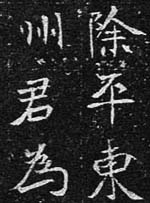 除平東
州君為